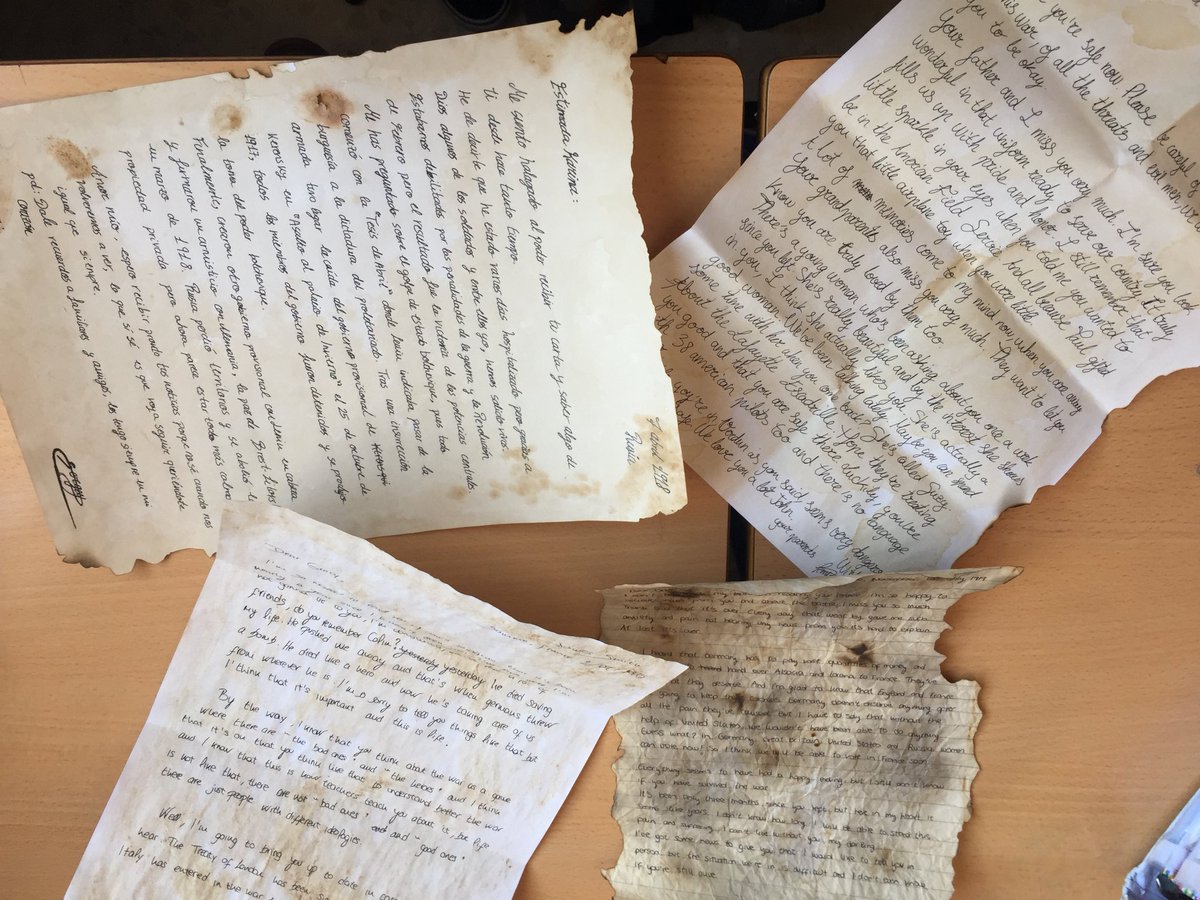 1 abril 1918
Rusia.
Estimada Karena:
Me siento halagado al poder recibir tu carta y saber algo de
ti desde hace tanto tiempo.
He de decirte que he estado varios días hospitalizado pero gracias a
Dios algunos de los soldados y entre ellos yo, hemos salido vivos.
Estábamos debilitados por las penalidades de la guerra y la Revolución
de Febrero pero el resultado fue la victoria de las potencias centrales.
Me has preguntado sobre el golpe de Estado bolchevique, pues todo
comenzó con la "Tesis de Abril" donde Lenin indicaba pasar de la
burguesía a la dictadura del proletariado. Tras una insurrección
armada tuvo lugar la caída del gobierno provisional de
Kerensky en "Asalto al palacio de Invierno" el 25 de octubre de
1917, todos los miembros del gobierno fueron detenidos y se produjo
la toma del poder bolchevique.
Finalmente, crearon otro gobierno provisional con Lenin en cabeza
y firmaron un armisticio con Alemania, la paz de Brest-Litovsk
en marzo de 1918. Rusia perdió territorios y se abolió la
propiedad privada pero ahora parece estar todo más calmado.
Amor mío, espero recibir pronto tus noticias porque no sé cuando nos
volveremos a ver, lo que sí sé es que voy a seguir queriéndote
igual que siempre.
pd: Dale recuerdos a familiares y amigos, los tengo siempre en mi
corazón
you're safe now. Please be careful
this war, of all the threats and
you to be okay
Your father and I miss you very much. I'm sure you look
wonderful in that uniform ready to serve our country. It truly
fills us up with pride and honor. I still remember that
little sparkle in your eyes when you told me you wanted to
be in the American Field Service. And all because Paul gifted
you that little airplane toy when you were little
A lot of memories come to my mind now when you are away
Your grandparents also miss you very much. They want to let you
know you are truly loved by them too
There's a young woman who's been asking about you once a week
since you left. She's really beautiful and by the interest she shows
in you, I think she actually likes you. She's actually a
good woman. We've been talking lately. Maybe you can spend
some time with her when you come back? She's called Suzy
About the Lafayette Escadrille. Hope they're treating
you good and that you are safe there. Luckily, you're
with 38 american pilots too and there is no language
you're in Verdun as you said seems very dangerous
We love you a lot John.
your parents
Dear
friends, do you remember Colin? yesterday yesterday he died saving
my life. He pushed me away and that's when germans threw
a bomb. He died like a hero and now he's taking care of us
from wherever he is. I'm sorry to tell you things like that but
I think that it's important and this is life.
By the way, I know that you think about the war as a game
where there are "the bad ones" and "the heroes" and I think
that it's ok that you think like that to understand better the war
and I know that this is how teachers teach you about it, but life
is not like that, there are not "bad ones" and "good ones"
there are just people with different ideologies.
Well, I'm going to bring you up to date in
hear. The Treaty of London has been
Italy has entered in the war
1919
I'm so happy to
I miss you so much
Thank God that it's over. Every day that went by gave me such
anxiety and pain not hearing any news from you. It's hard to explain.
At last it's over.
I heard that Germany has to pay vast quantities of money and
hand over Alsacia and Lorena to France. They've
what they deserve. And I'm glad to know that England and France
going to keep the colonies. Germany doesn't deserve anything after
all the pain they but I have to say that without the
help of United States, we wouldn't have been able to do anything.
Guess what? In Germany, Great Britain, United States and Russia women
can vote now! So I think we'll be able to vote in France soon.
Everything seems to have had a happy ending but I still don't know
if you have survived the war.
It's been only three months since you left, but here in my heart it
seems like years. I don't know how long I will be able to stand this
pain and suffering. I can't live without you my darling.
I've got some news to give you that I would like to tell you in
person, but the situation we're in is difficult and I don't even know
if you're still alive.